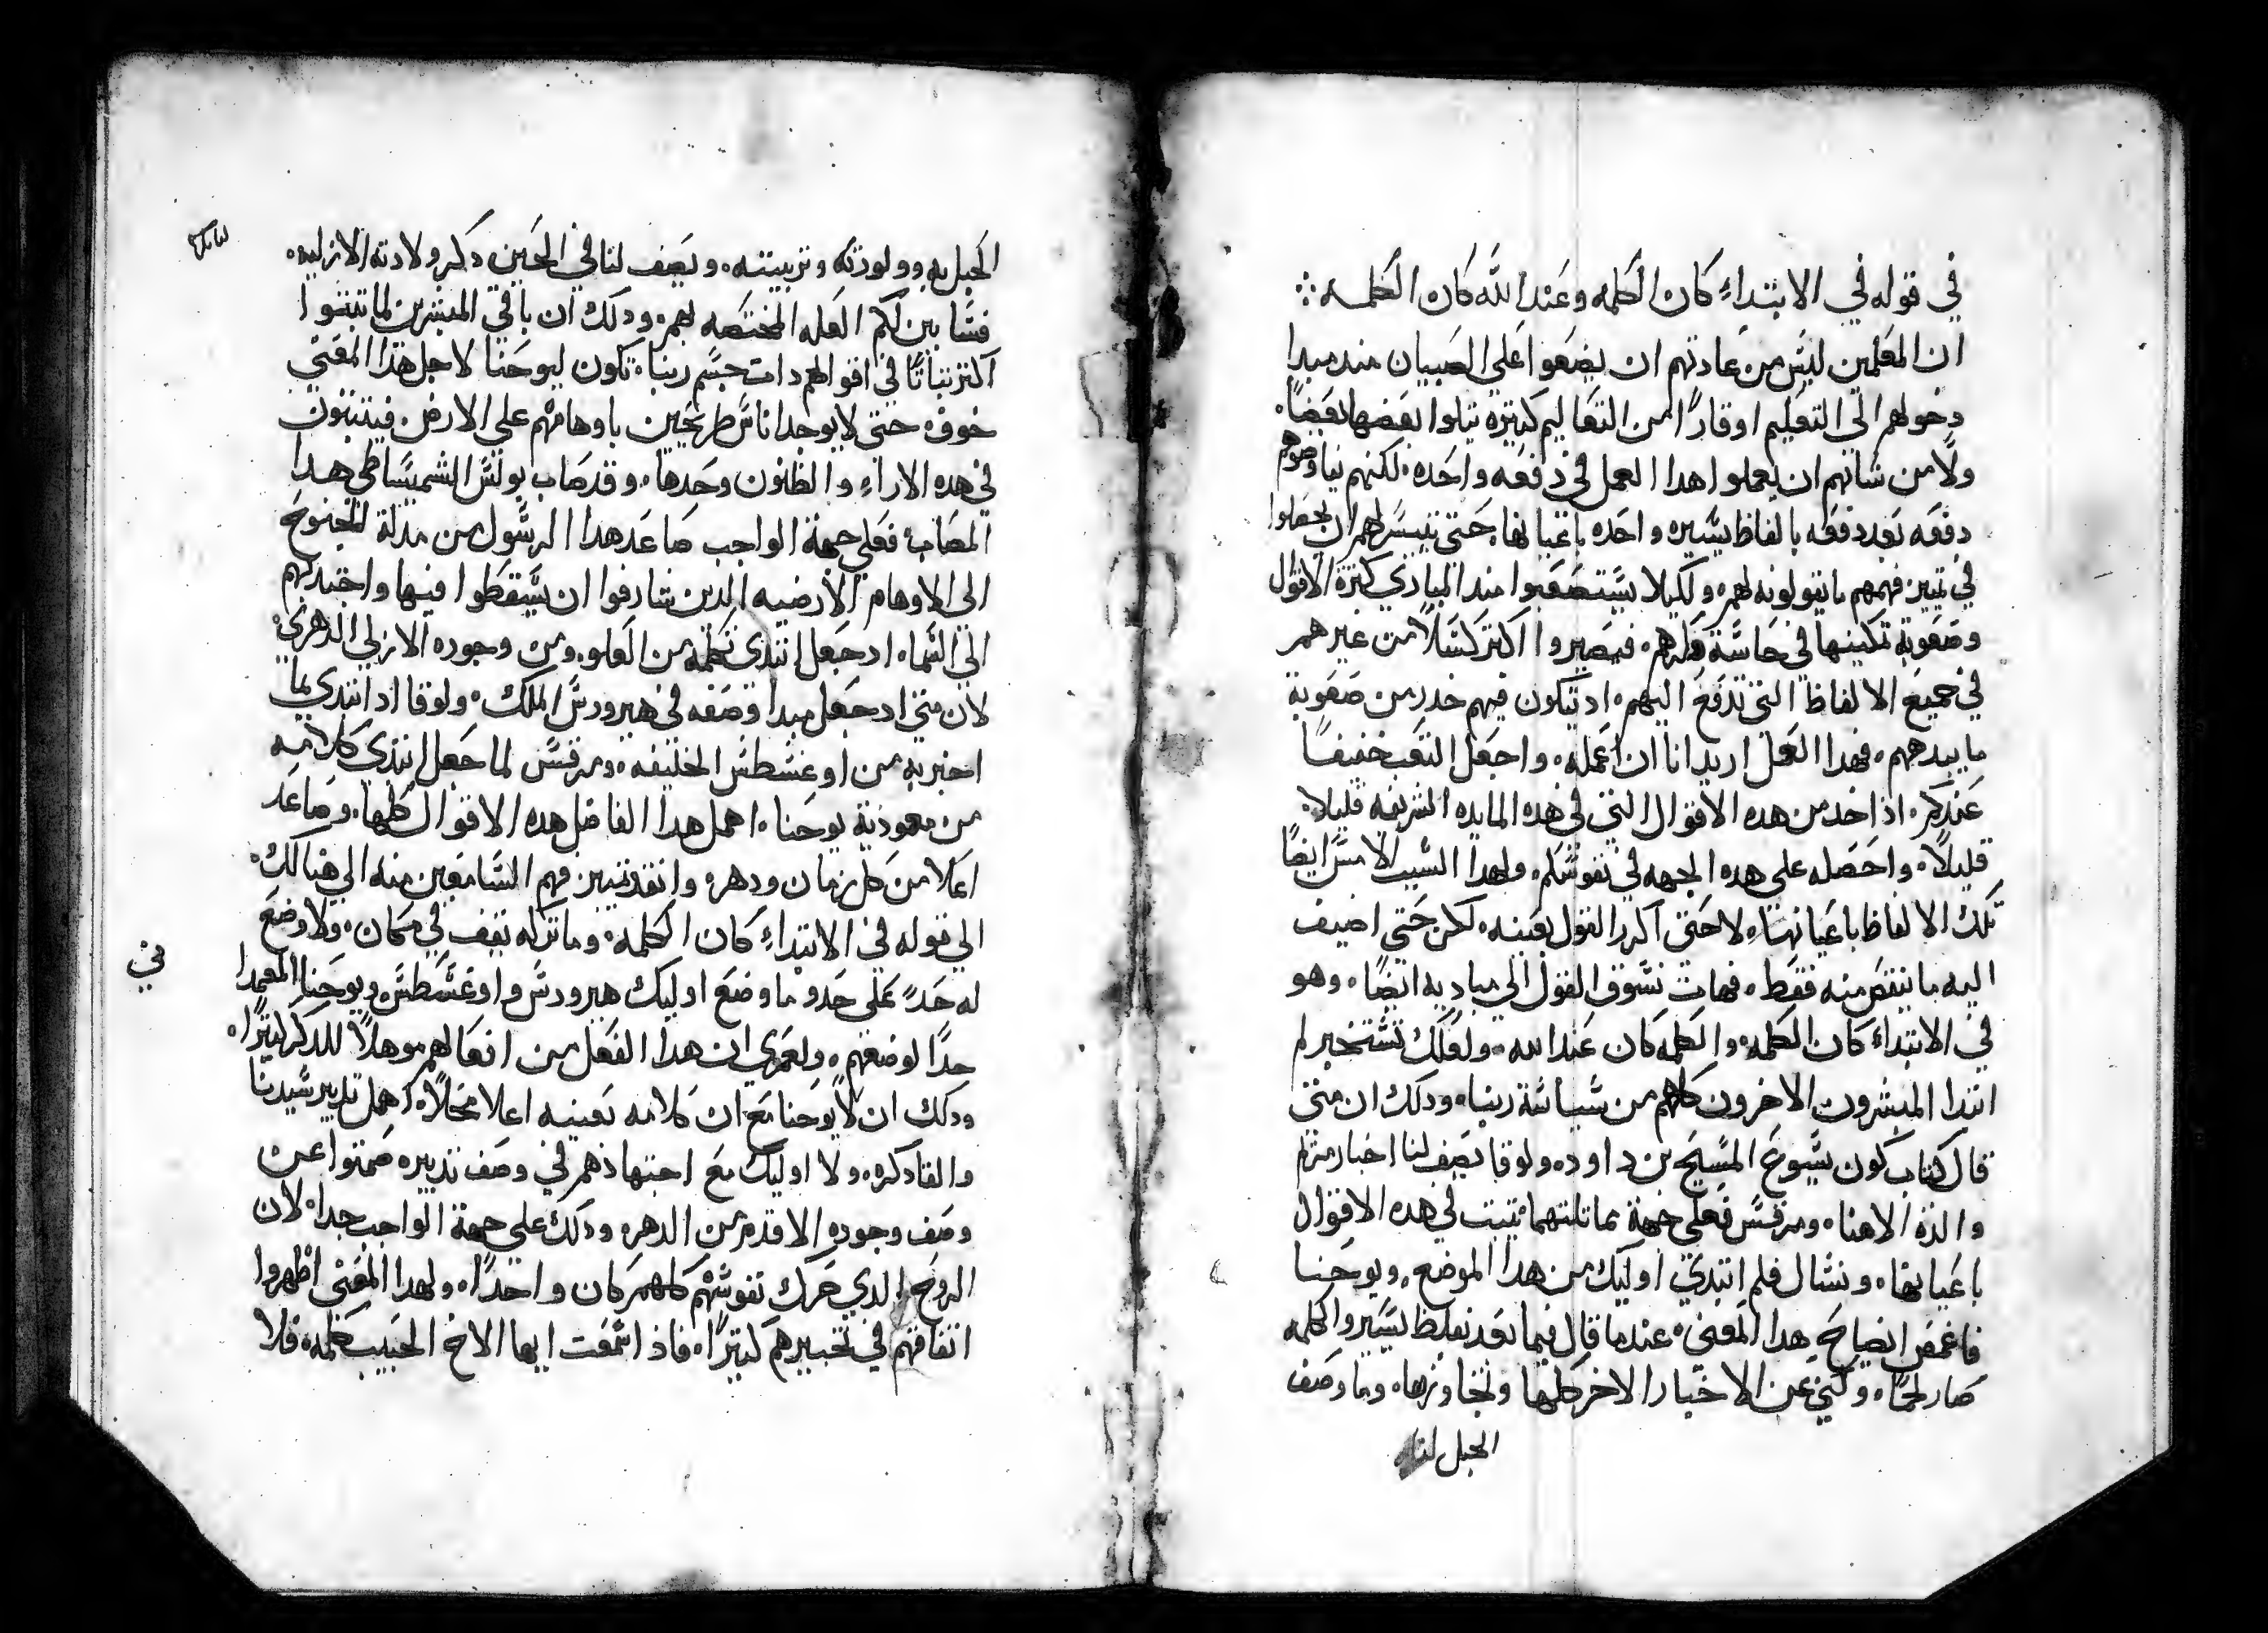 في قوله في الابتداءِ كان الكلمه وعند الله كان الكلمه ܀
ان المعلمين ليس من عادتهم ان يضعوا علي الصبيان مند مبدا
دخولهم الي التعليم اوقارًا من التعاليم كتيره تتلوا بعضها بعضًا.
ولا من شانهم ان يعملوا هدا العمل في دفعه واحده. لكنهم يفاوضوهم
دفعه بعد دفعه بالفاظ يسيره واحده باعيانها. حتي يتيسر لهم ان يجعلوا
في تمييز فهمهم ما يقولونه لهم. ولكيلا يستصعبوا مند المبادي كترة الاقوال
وصعوبة تمكينها في حاسة عقلهم. فيصيروا اكتر كسلًا من غيرهم
في جميع الالفاظ التي تدفع اليهم. اد يتكون فيهم خدر من صعوبة
ما يبدههم. فهدا العمل اريد انا ان اعمله. واجعل التعب خفيفًا
عندكم. اذ اخد من هده الاقوال التي في هده المايده الشريفه قليلًا.
قليلًا. واحصله علي هده الجهه في نفوسكم. ولهدا السبب الامس ايضًا
تلك الالفاظ باعيانها. لا حتي اكرر القول بعينه. لكن حتي اضيف
اليه ما ينقص منه فقط. فهات نسوق القول الي مباديه ايضًا. وهو
في الابتداء كان الكلمه والكلمه كان عند الله. ولعلك تستخبر لم
ابتدا المبشرون الاخرون كلهم من سياسة ربنا. ودلك ان متي
قال كتاب كون يسوع المسيح بن داود. ولوقا يصف لنا اخبار مريم
والدة الاهنا. ومرقس فعلي جهة مماتلتهما يتبت في هده الاقوال
باعيانها. ونسال فلم ابتدي اوليك من هدا الموضع. ويوحنا
فاغمض ايضاح هدا المعني. عندما قال فيما بعد بلفظ يسير والكلمه
صار لحمًا. وكني عن الاخبار الاخر كلها وتجاوزها. وما وصف
الحبل لنا
الحبل به وولودته وتربيته. ويصف لنا في الحين دكر ولادته الازليه.
فسابين لكم العله المختصه بهم. ودلك ان باقي المبشرين لما تبتوا
اكتر تباتًا في اقوالهم دات جسم ربنا. تكون ليوحنا لاجل هدا المعني
خوف. حتي لا يوجد اناس طريحين باوهامهم علي الارض. فيتبتون
في هده الاراءِ والظنون وحدها. وقد صاب بولس الشميساطي هدا
المصاب. فعلي جهة الواجب صاعد هدا الرسول من مدلة الجنوح
الي الاوهام الارضيه الدين شارفوا ان يسقطوا فيها واجتدبهم
الي السماء. اد جعل ابتدي كلمه من العلو. ومن وجوده الازلي الدهري.
لان متي اد جعل مبدا وصفه في هيرودس الملك. ولوقا اد ابتدي بما
اخبر به من اوغسطس الخليفه. ومرقس لما جعل ابتدي كلامه
من معموذية يوحنا. اهمل هدا الفاضل هده الاقوال كلها. وصاعد
اعلا من كل زمان ودهر. وانفد تمييز فهم السامعين منه الي هنالك.
الي قوله في الابتداءِ كان الكلمه. وما تركه يقف في مكان. ولا وضع
له حدً علي حدو ما وضع اوليك هيرودس واوغسطس ويوحنا المعمدا
حدًا لوضعهم. ولعمري ان هدا الفعل من افعالهم موهلًا للدكر كتيرًا.
ودلك ان لا يوحنا مع ان كلامه بعينه اعلا محلًا. اهمل تدبير سيدنا
والغا دكره. ولا اوليك مع اجتهادهم في وصف تدبيره صمتوا عن
وصف وجوده الاقدم من الدهر. ودلك علي جهة الواجب جدا. لان
الروح الدي حرك نفوسهم كلهم كان واحدًا. ولهدا المعني اظهروا
اتفاقهم في تخبيرهم كتيرًا. فاذ اسمعت ايها الاخ الحبيب كلمه. فلا